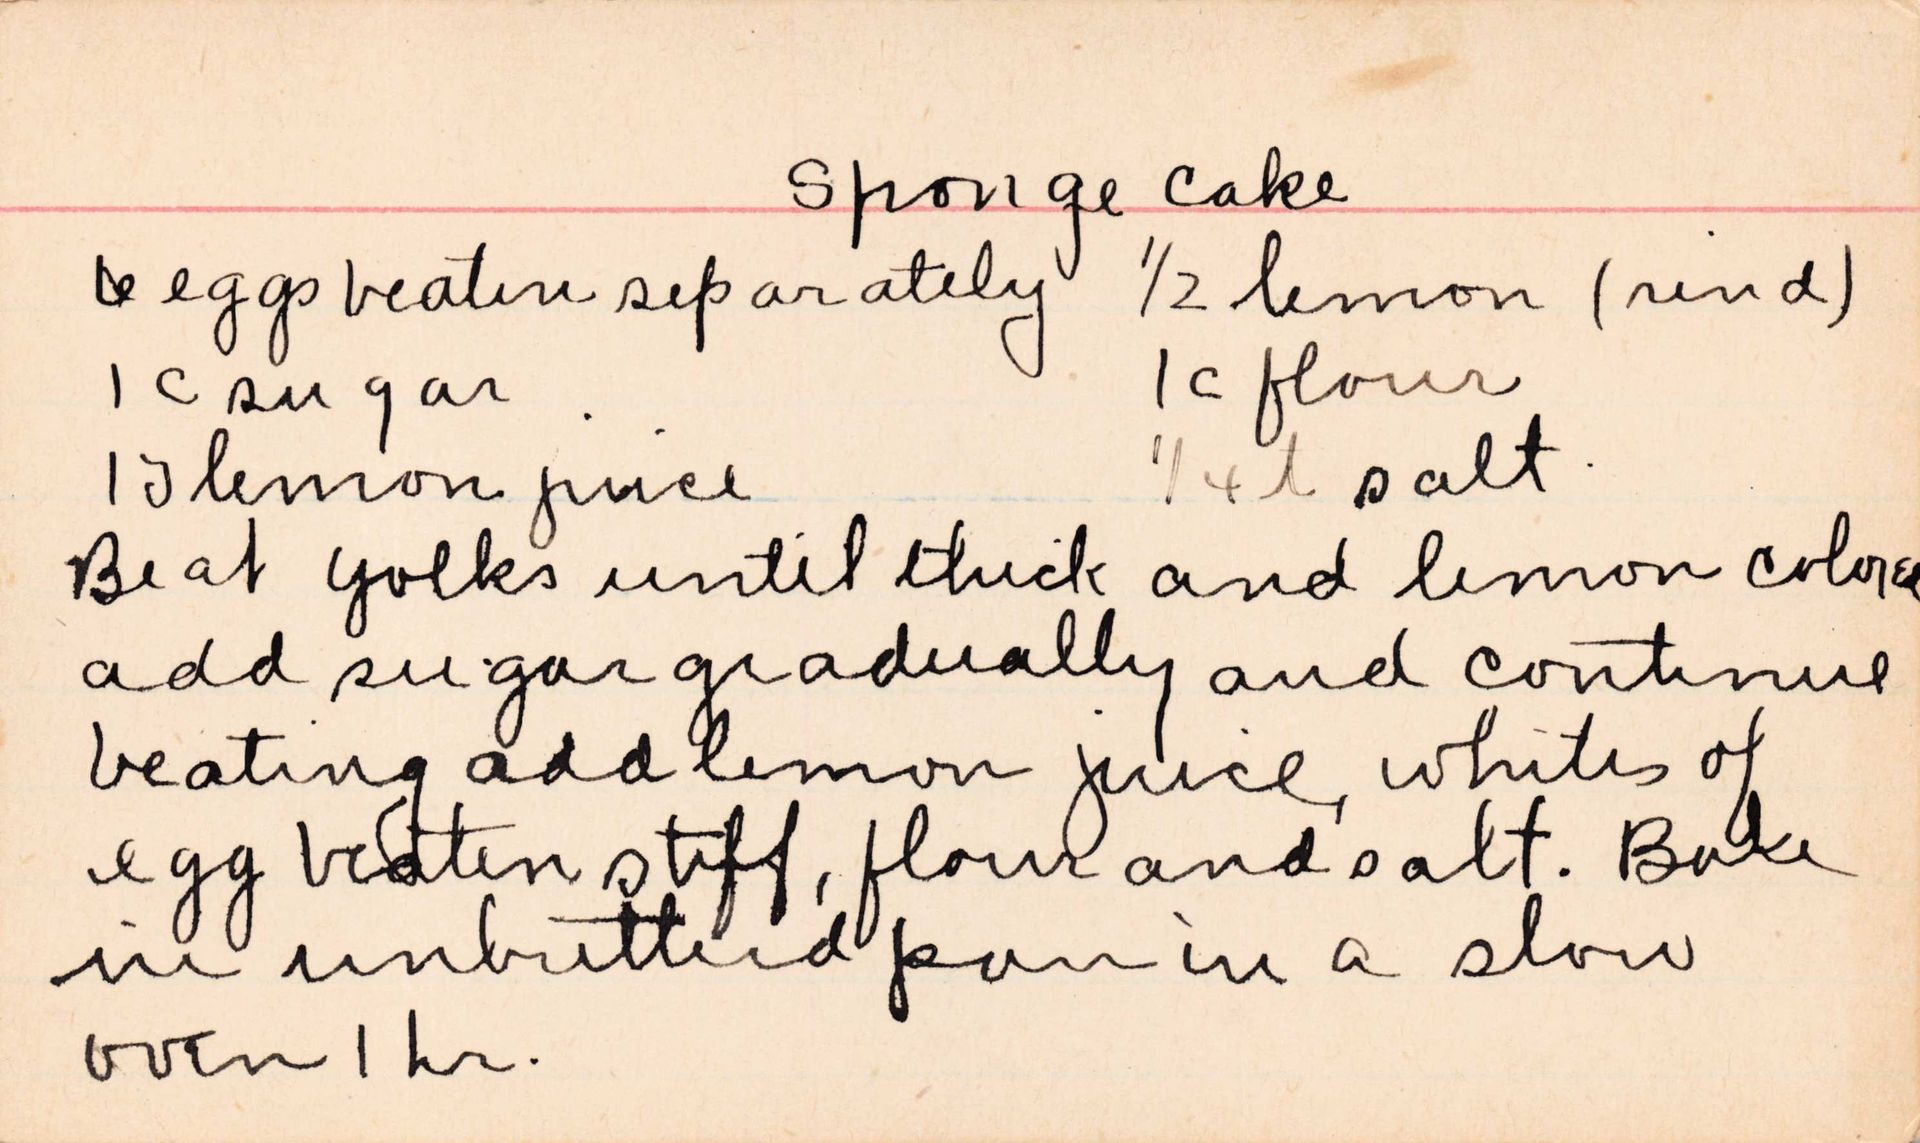 Sponge cake
6 eggs beaten separately 1/2 lemon (rind)
1 c sugar 1 c flour
1 T lemon juice 1/4 t salt.
Beat yolks until thick and lemon colored
add sugar gradually and continue
beating add lemon juice, whites of
egg beaten stiff, flour and salt. Bake
in unbutterd pan in a slow
oven 1 hr.